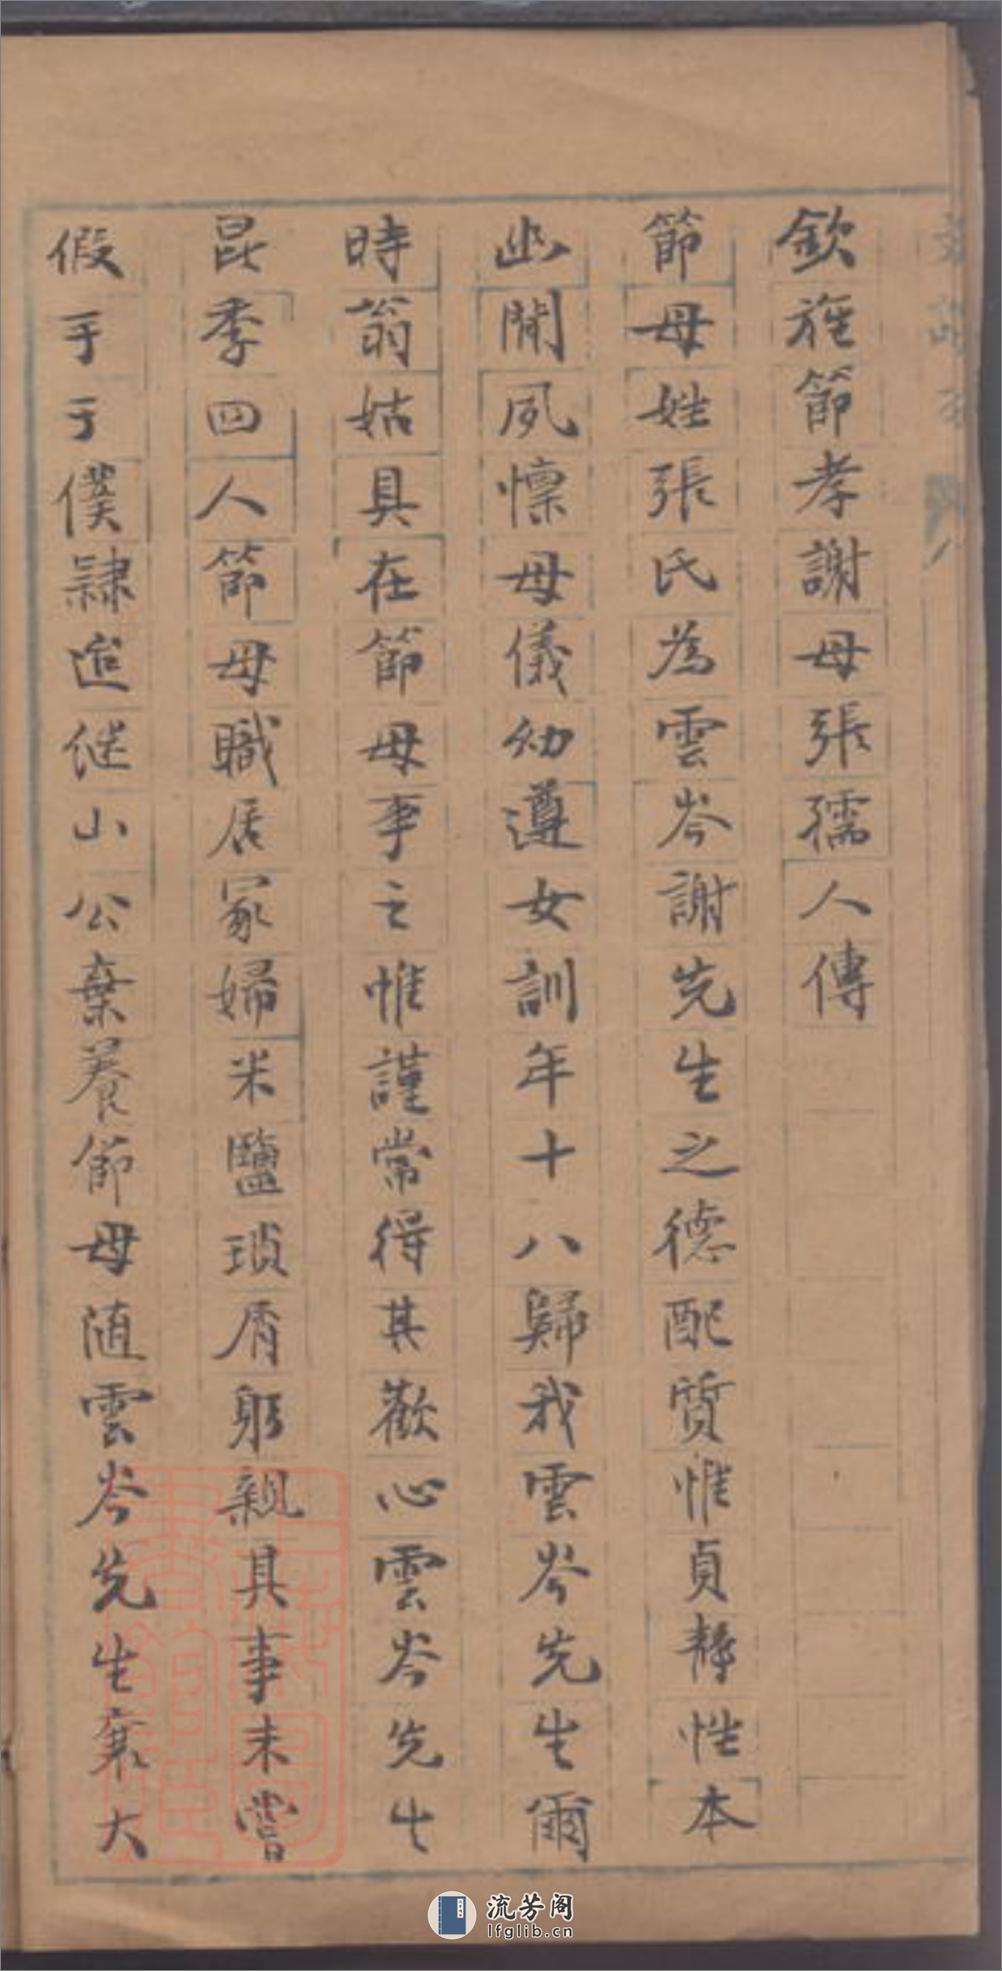 欽旌節孝謝母張孺人傳
節母姓張氏為雲岑謝先生之德配質惟貞靜性本
幽閒夙懔母儀幼遵女訓年十八歸我雲岑先生爾
時翁姑具在節母事之惟謹常得其歡心雲岑先生
昆季四人節母職居冢婦米鹽瑣屑躬親其事未嘗
假手于僕隷迨继山公棄養節母随雲岑先生襄大
流芳阁
lfglib.cn